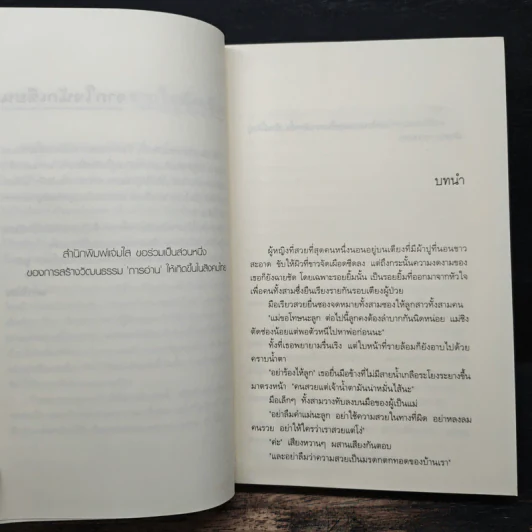 สำนักพิมพ์แจ่มใส ขอร่วมเป็นส่วนหนึ่ง
ของการสร้างวัฒนธรรม 'การอ่าน' ให้เกิดขึ้นในสังคมไทย
บทนำ
ผู้หญิงที่สวยที่สุดคนหนึ่งนอนอยู่บนเตียงที่มีผ้าปูที่นอนขาว
สะอาด รับให้ผิวที่ขาวจัดเผือดซีดลง แต่ถึงกระนั้นความงดงามของ
เธอก็ยังฉายชัด โดยเฉพาะรอยยิ้มนั้น เป็นรอยยิ้มที่ออกมาจากหัวใจ
เพื่อคนทั้งสามซึ่งยืนเรียงรายกันรอบเตียงผู้ป่วย
มือเรียวสวยยื่นซองจดหมายทั้งสามซองให้ลูกสาวทั้งสามคน
"แม่ขอโทษนะลูก ต่อไปนี้ลูกคงต้องลำบากกันนิดหน่อย แม่ชิง
ตัดช่องน้อยแต่พอตัวหนีไปหาพ่อก่อนนะ"
ทั้งที่เธอพยายามรื่นเริง แต่ใบหน้าที่รายล้อมก็ยังอาบไปด้วย
คราบน้ำตา
"อย่าร้องไห้ลูก" เธอยื่นมือข้างที่ไม่มีสายน้ำเกลือระโยงระยางขึ้น
มาตรงหน้า "คนสวยแต่เจ้าน้ำตามันน่าหมั่นไส้นะ"
มือเล็กๆ ทั้งสามวางทับลงบนมือของผู้เป็นแม่
"อย่าลืมคำแม่นะลูก อย่าใช้ความสวยในทางที่ผิด อย่าหลงลม
คนรวย อย่าให้ใครว่าเราสวยแต่โง่"
"ค่ะ" เสียงหวานๆ ผสานเสียงกันตอบ
"และอย่าลืมว่าความสวยเป็นมรดกตกทอดของบ้านเรา"